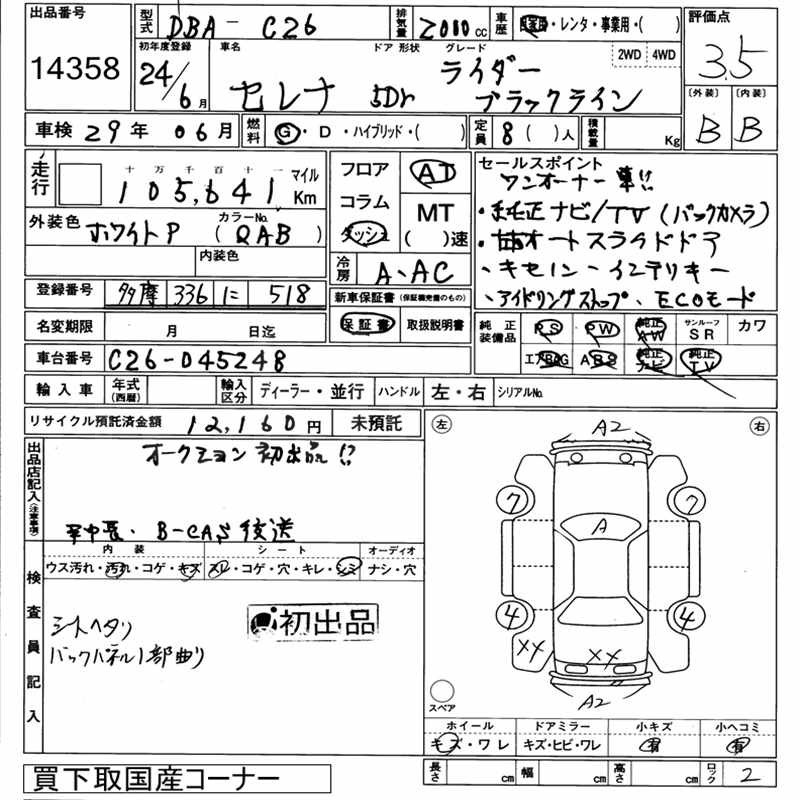 出品番号 14358
型式 DBA-C26 排気量 2000cc 車歴 自家用・レンタ・事業用・( ) 評価点 3.5
初年度登録 24/6月 車名 セレナ ドア 形状 5Dr グレード ライダー ブラックライン 2WD 4WD
〔外装〕 B 〔内装〕 B
車検 29年 06月 燃料 G・D・ハイブリッド・( ) 定員 8( )人 積載量 Kg
走行 十万千百十一 105,641 マイル Km
フロア コラム ダッシュ AT MT ( )速
セールスポイント
ワンオーナー車!!
・純正ナビ/TV(バックカメラ)
オートスライドドア
・キセノン・インテリキー
・アイドリングストップ、ECOモード
外装色 ホワイトP カラーNo. (QAB)
内装色
冷房 A・AC
登録番号 多摩 336 に 518
新車保証書(保証継続書のもの)
保証書 取扱説明書
名変期限 月 日迄
純正装備品 PS PW 純正AW サンルーフSR カワ
エアBAG ABS 純正ナビ 純正TV
車台番号 C26-045248
輸入車 年式(西暦) 輸入区分 ディーラー・並行 ハンドル 左・右 シリアルNo.
リサイクル預託済金額 12,160円 未預託
出品店記入(注意事項)
オークション初出品!!
B-CAS後送
内装 シート オーディオ
ウス汚れ・汚れ・コゲ・キズ スレ・コゲ・穴・キレ・シミ ナシ・穴
検査員記入
初出品
シートヘタリ
バックパネル1部曲り
左 右
A2
7 7
A
4 4
XX XX
A2
スペア
ホイール ドアミラー 小キズ 小ヘコミ
キズ・ワレ キズ・ヒビ・ワレ 有 有
長さ cm 幅 cm 高さ cm ロック 2
買下取国産コーナー